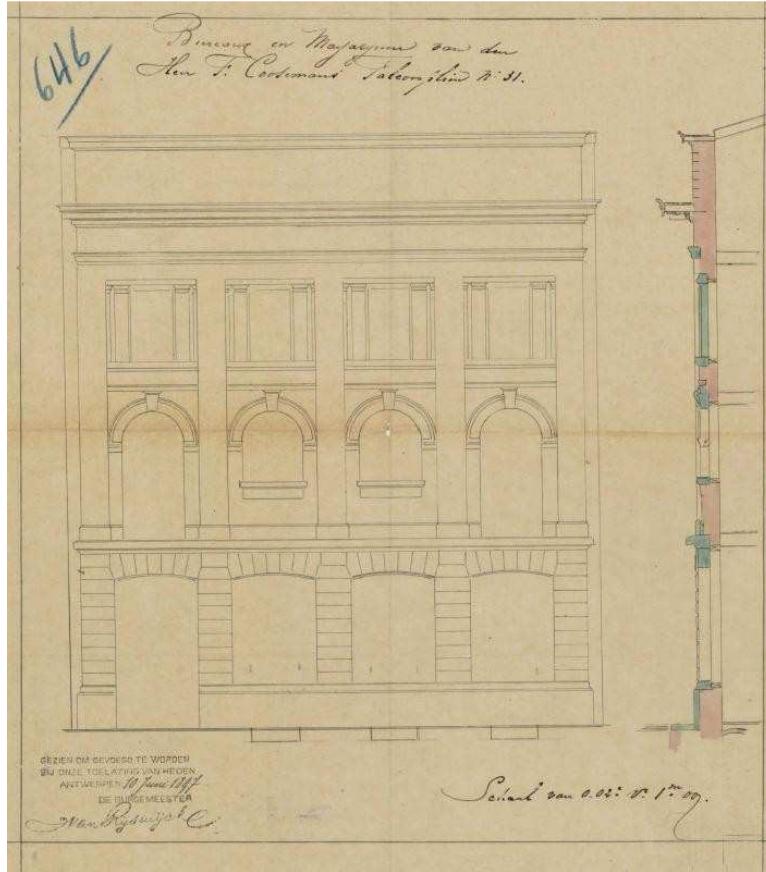 646
Bureaux en Magazynen van den
Heer F. Coosemans Falconplein No 31.
GEZIEN OM GEVOEGD TE WORDEN
BIJ ONZE TOELATING VAN HEDEN
ANTWERPEN 10 Juni 1897
DE BURGEMEESTER
Van Rijswijck
Schaal van 0.02c Vr 1m 00.